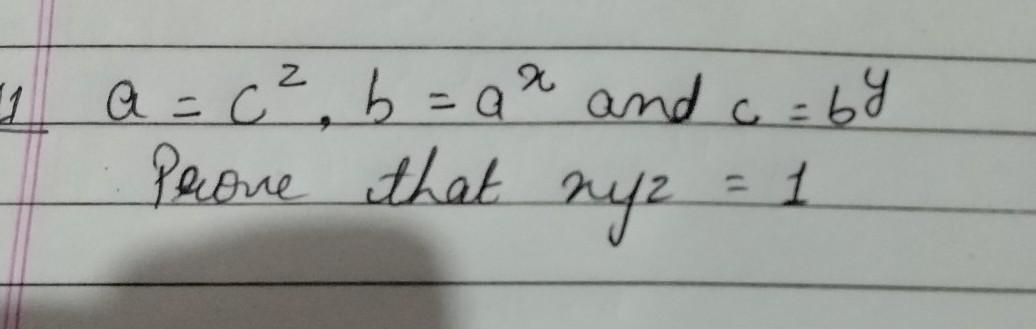 1 a = c^z, b = a^x and c = b^y
Prove that xyz = 1